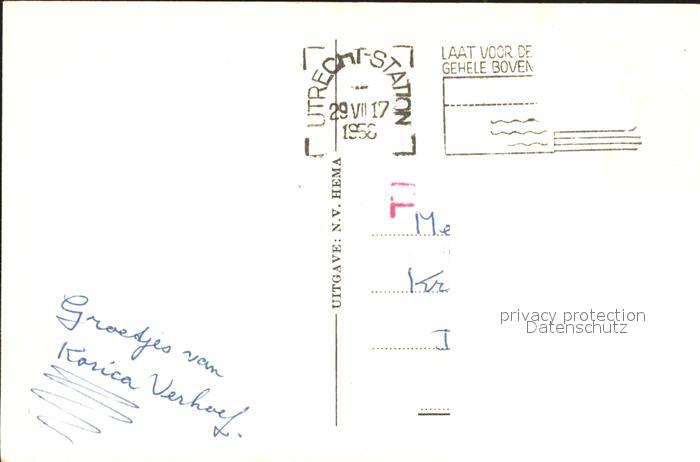 UTRECHT-STATION
29 VII 17
1956
LAAT VOOR DE
GEHELE BOVEN
UITGAVE: N.V. HEMA
T
Me
Kr
privacy protection
Datenschutz
Groetjes van
Korica Verhoef.